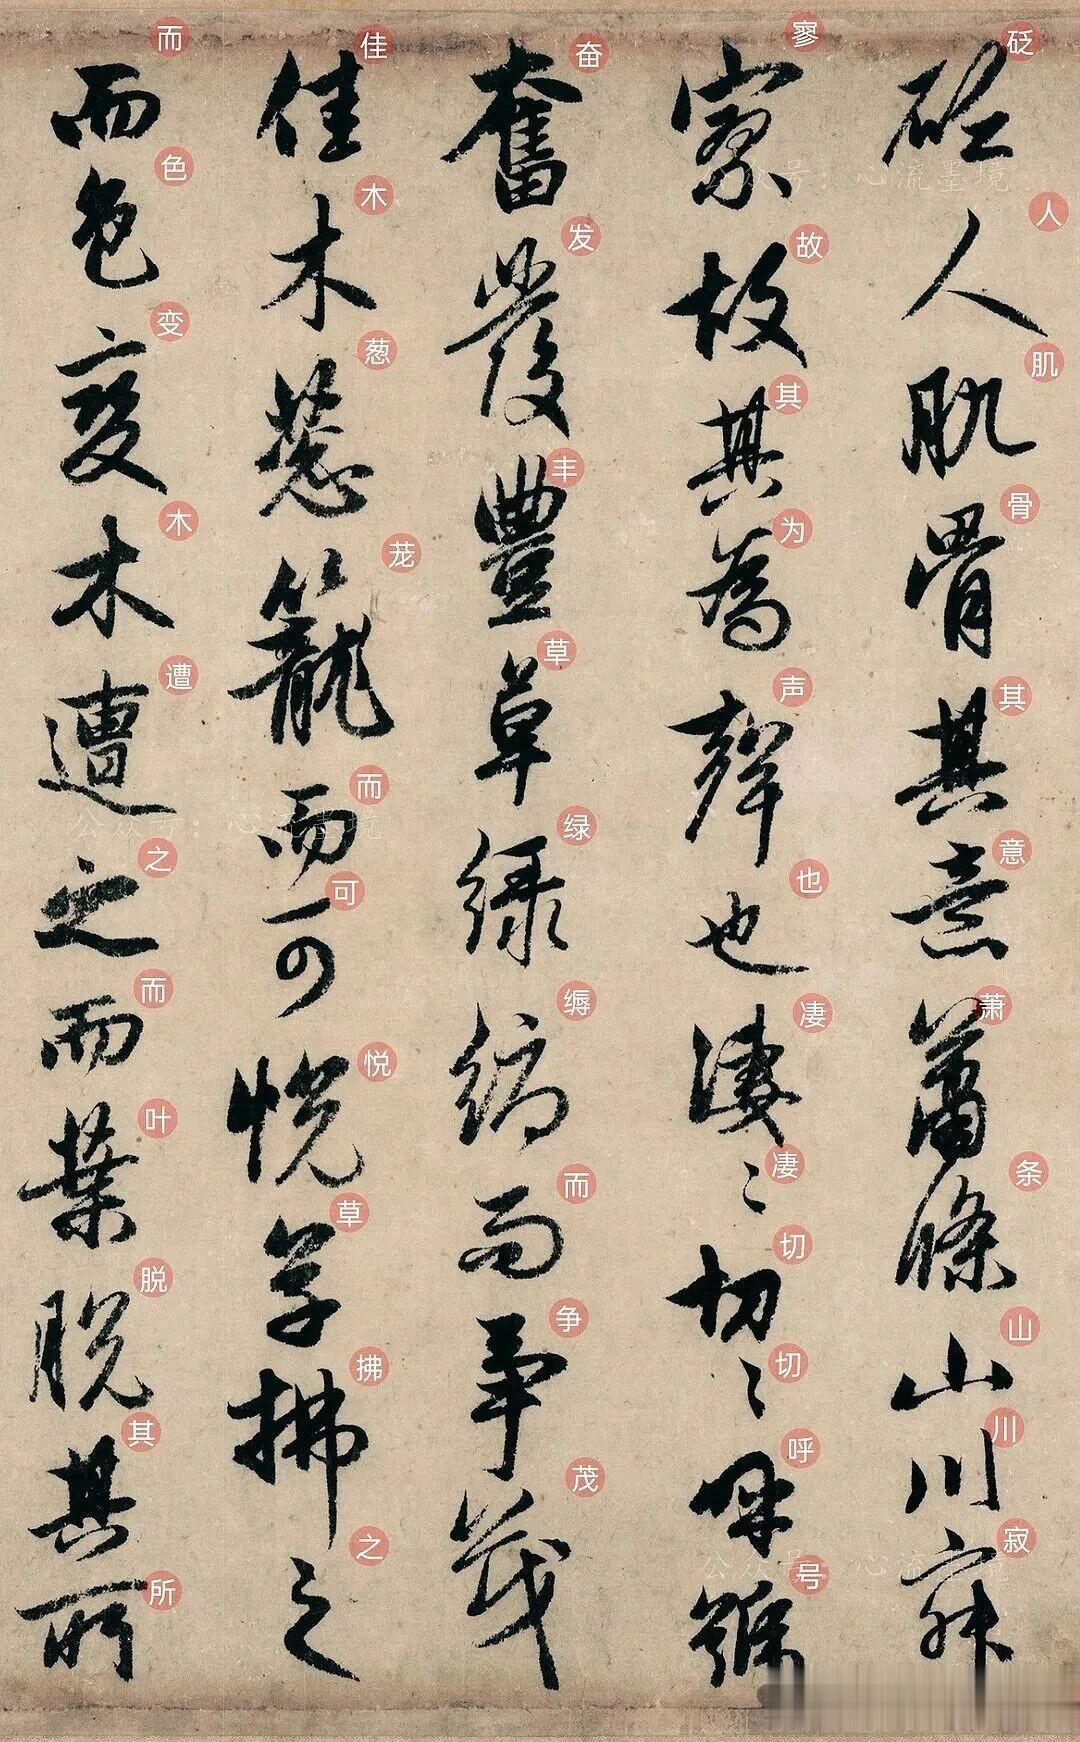 砭人肌骨其意蕭條山川寂
寥故其為聲也淒〻切〻呼號
奮發豐草綠縟而爭茂
佳木葱籠而可悅草拂之
而色變木遭之而葉脫其所
砭人肌骨其意萧条山川寂
寥故其为声也凄凄切切呼号
奋发丰草绿缛而争茂
佳木葱茏而可悦草拂之
而色变木遭之而叶脱其所
公众号：心流墨境
公众号：心流墨境
公众号：心流墨境